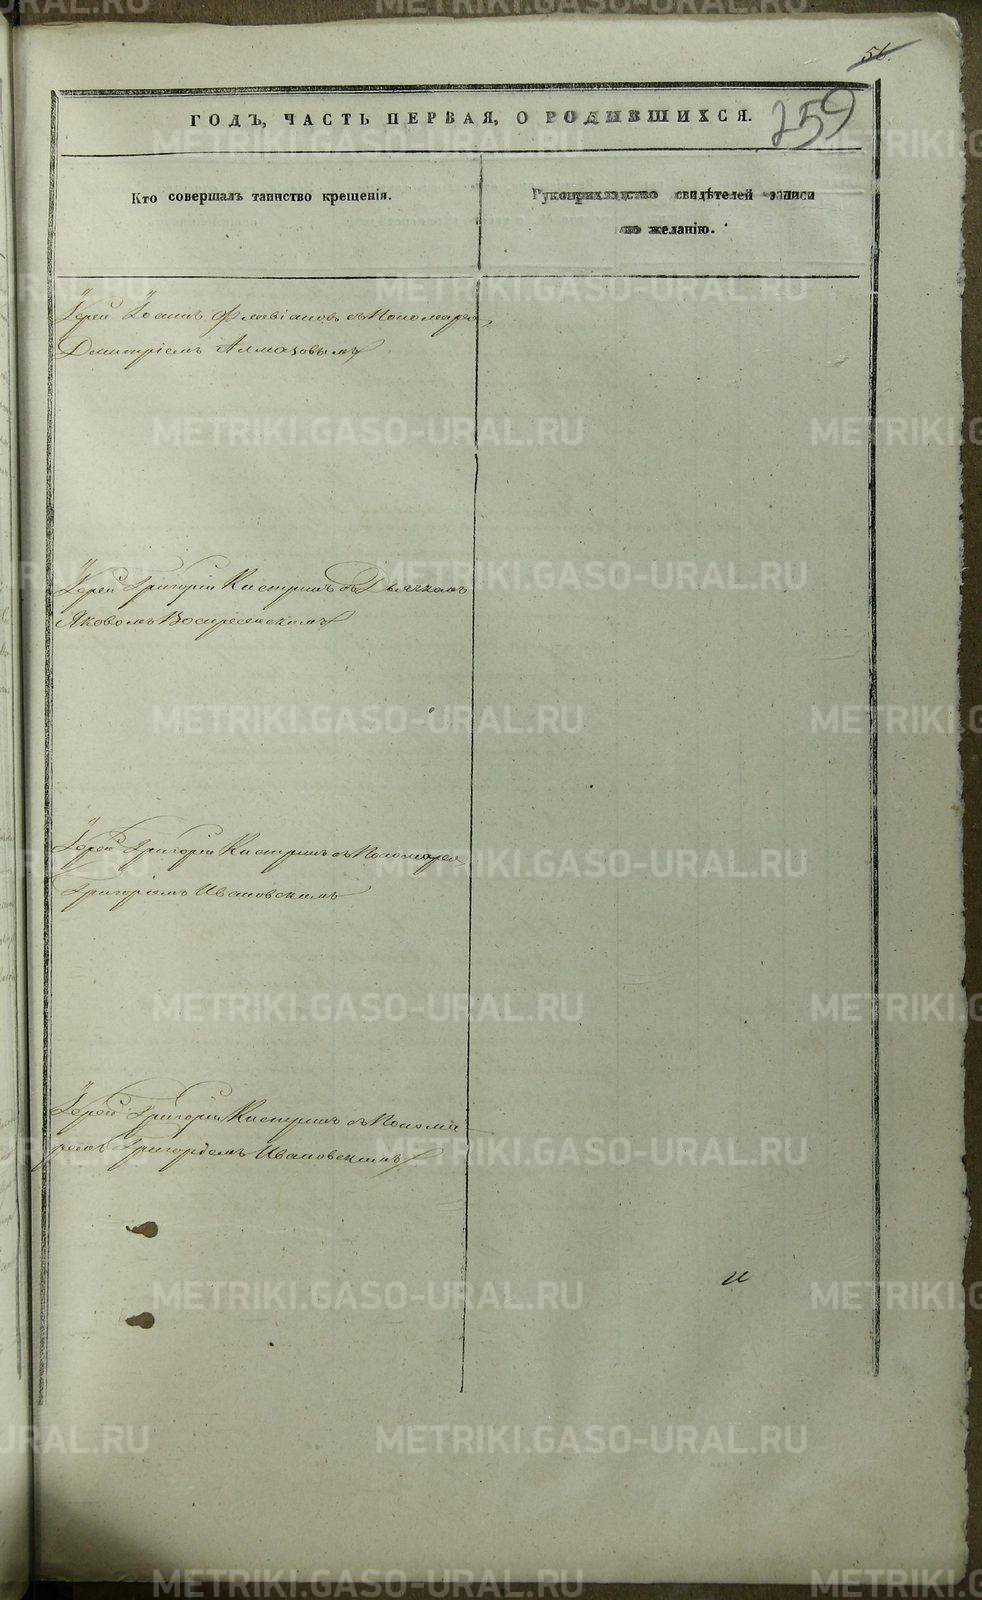 56.
ГОДЪ, ЧАСТЬ ПЕРВАЯ, О РОДИВШИХСЯ.
259
Кто совершалъ таинство крещенія.
Рукоприкладство свидѣтелей записи
по желанію.
Іерей Іоаннъ Флавіановъ съ Пономаремъ
Дмитріемъ Алмазовымъ
Іерей Григорій Кастринъ съ Дьячкомъ
Яковомъ Воскресенскимъ
Іерей Григорій Кастринъ съ Пономаремъ
Григоріемъ Ивановскимъ
Іерей Григорій Кастринъ съ Понома
ремъ Григоріемъ Ивановскимъ
и
METRIKI.GASO-URAL.RU